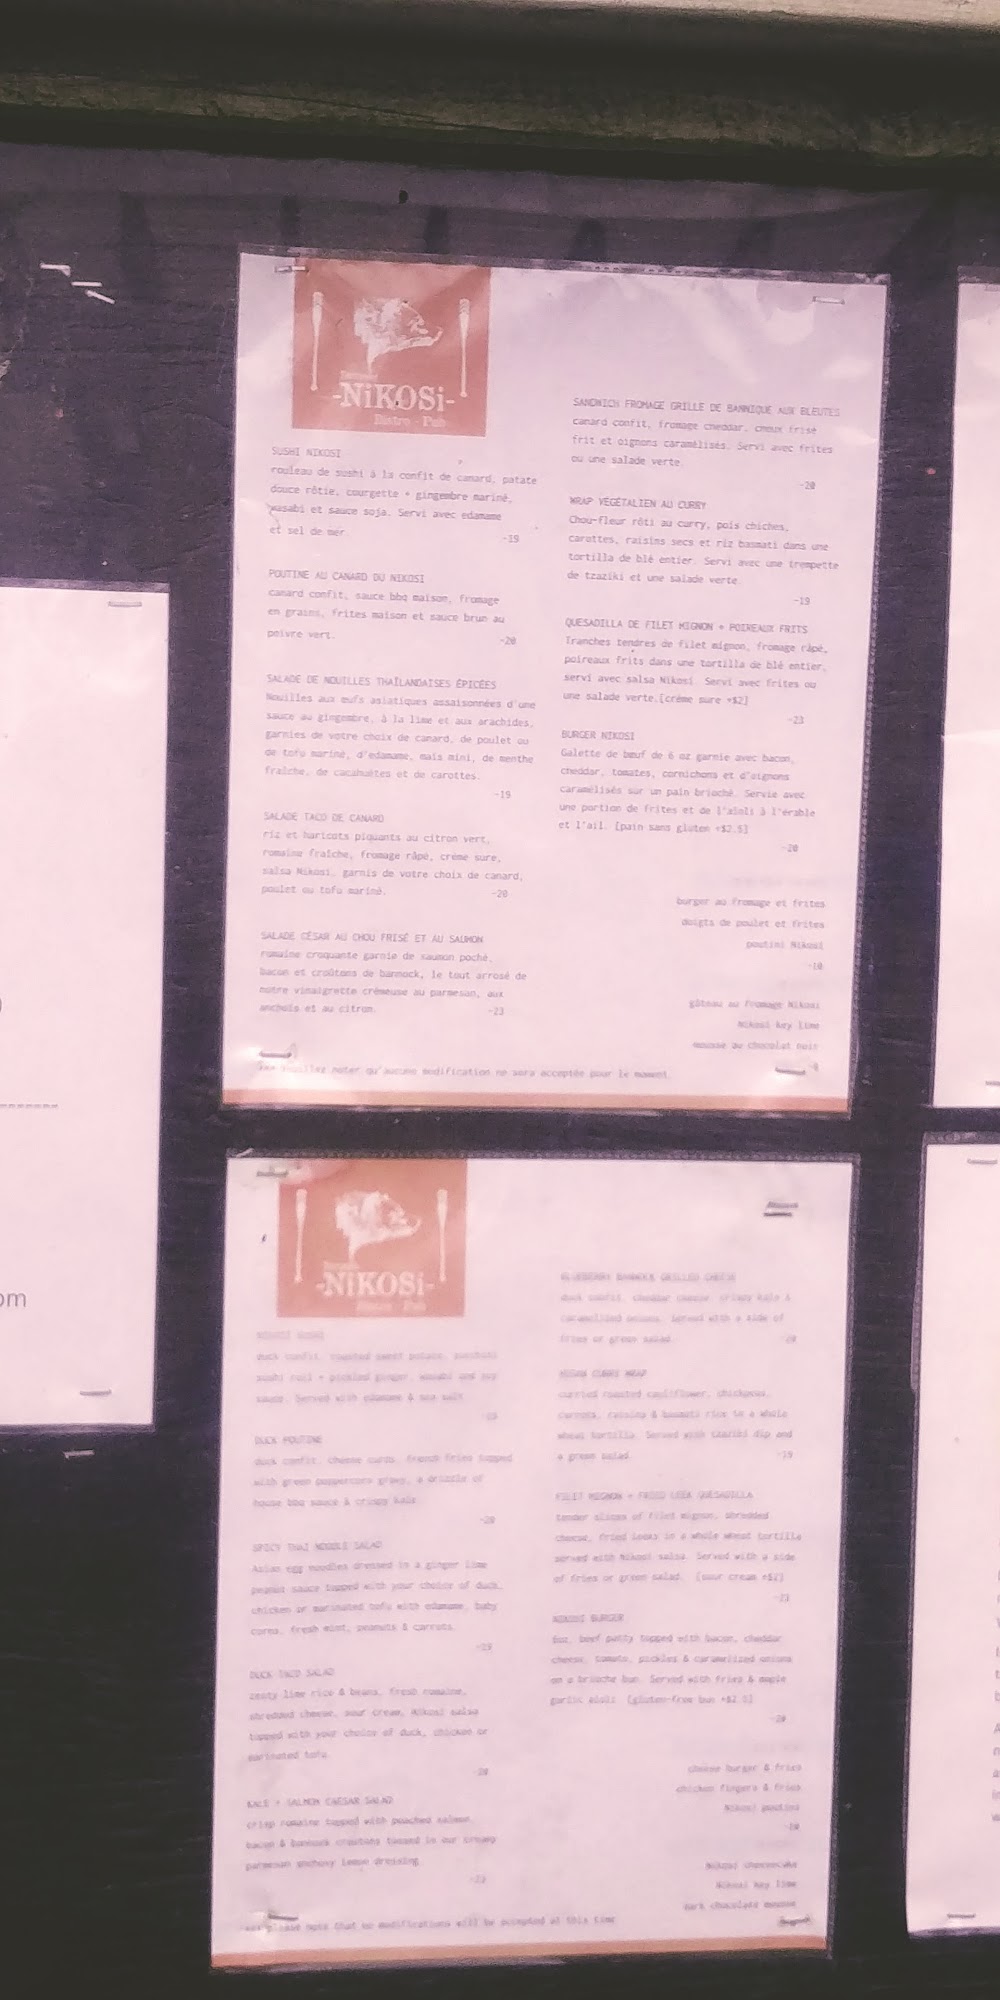 -NiKOSi-
Bistro - Pub
SUSHI NIKOSI
rouleau de sushi à la confit de canard, patate
douce rôtie, courgette + gingembre mariné,
wasabi et sauce soja. Servi avec edamame
et sel de mer.
-19
POUTINE AU CANARD DU NIKOSI
canard confit, sauce bbq maison, fromage
en grains, frites maison et sauce brun au
poivre vert.
-20
SALADE DE NOUILLES THAÏLANDAISES ÉPICÉES
Nouilles aux œufs asiatiques assaisonnées d'une
sauce au gingembre, à la lime et aux arachides,
garnies de votre choix de canard, de poulet ou
de tofu mariné, d'edamame, mais mini, de menthe
fraîche, de cacahuètes et de carottes.
-19
SALADE TACO DE CANARD
riz et haricots piquants au citron vert,
romaine fraîche, fromage râpé, crème sure,
salsa Nikosi, garnis de votre choix de canard,
poulet ou tofu mariné.
-20
SALADE CÉSAR AU CHOU FRISÉ ET AU SAUMON
romaine croquante garnie de saumon poché,
bacon et croûtons de bannock, le tout arrosé de
notre vinaigrette crémeuse au parmesan, aux
anchois et au citron.
-23
SANDWICH FROMAGE GRILLE DE BANNIQUE AUX BLEUTES
canard confit, fromage cheddar, choux frisé
frit et oignons caramélisés. Servi avec frites
ou une salade verte.
-20
WRAP VÉGÉTALIEN AU CURRY
Chou-fleur rôti au curry, pois chiches,
carottes, raisins secs et riz basmati dans une
tortilla de blé entier. Servi avec une trempette
de tzaziki et une salade verte.
-19
QUESADILLA DE FILET MIGNON + POIREAUX FRITS
Tranches tendres de filet mignon, fromage râpé,
poireaux frits dans une tortilla de blé entier,
servi avec salsa Nikosi. Servi avec frites ou
une salade verte.[crème sure +$2]
-23
BURGER NIKOSI
Galette de bœuf de 6 oz garnie avec bacon,
cheddar, tomates, cornichons et d'oignons
caramélisés sur un pain brioché. Servie avec
une portion de frites et de l'aïoli à l'érable
et l'ail. [pain sans gluten +$2.5]
-20
burger au fromage et frites
doigts de poulet et frites
poutini Nikosi
-10
gâteau au fromage Nikosi
Nikosi key lime
mousse au chocolat noir
noter qu'aucune modification ne sera acceptée pour le moment
-NIKOSi-
Bistro - Pub
duck confit, roasted sweet potato, zucchini
sushi roll + pickled ginger, wasabi and soy
sauce. Served with edamame & sea salt
-19
DUCK POUTINE
duck confit, cheese curds, french fries topped
with green peppercorn gravy, a drizzle of
house bbq sauce & crispy kale
-20
SPICY THAI NOODLE SALAD
Asian egg noodles dressed in a ginger lime
peanut sauce topped with your choice of duck,
chicken or marinated tofu with edamame, baby
corns, fresh mint, peanuts & carrots.
-19
DUCK TACO SALAD
zesty lime rice & beans, fresh romaine,
shredded cheese, sour cream, Nikosi salsa
topped with your choice of duck, chicken or
marinated tofu.
-20
KALE + SALMON CAESAR SALAD
crisp romaine topped with poached salmon,
bacon & bannock croutons tossed in our creamy
parmesan anchovy lemon dressing.
-23
BLUEBERRY BANNOCK GRILLED CHEESE
duck confit, cheddar cheese, crispy kale &
caramelized onions. Served with a side of
fries or green salad.
-20
VEGAN CURRY WRAP
curried roasted cauliflower, chickpeas,
carrots, raisins & basmati rice in a whole
wheat tortilla. Served with tzaziki dip and
a green salad.
-19
FILET MIGNON + FRIED LEEK QUESADILLA
tender slices of filet mignon, shredded
cheese, fried leeks in a whole wheat tortilla
served with Nikosi salsa. Served with a side
of fries or green salad. [sour cream +$2]
-23
NIKOSI BURGER
6oz. beef patty topped with bacon, cheddar
cheese, tomato, pickles & caramelized onions
on a brioche bun. Served with fries & maple
garlic aioli. [gluten-free bun +$2.5]
-20
cheese burger & fries
chicken fingers & fries
Nikosi poutini
-10
Nikosi cheesecake
Nikosi key lime
dark chocolate mousse
please note that no modifications will be accepted at this time
om